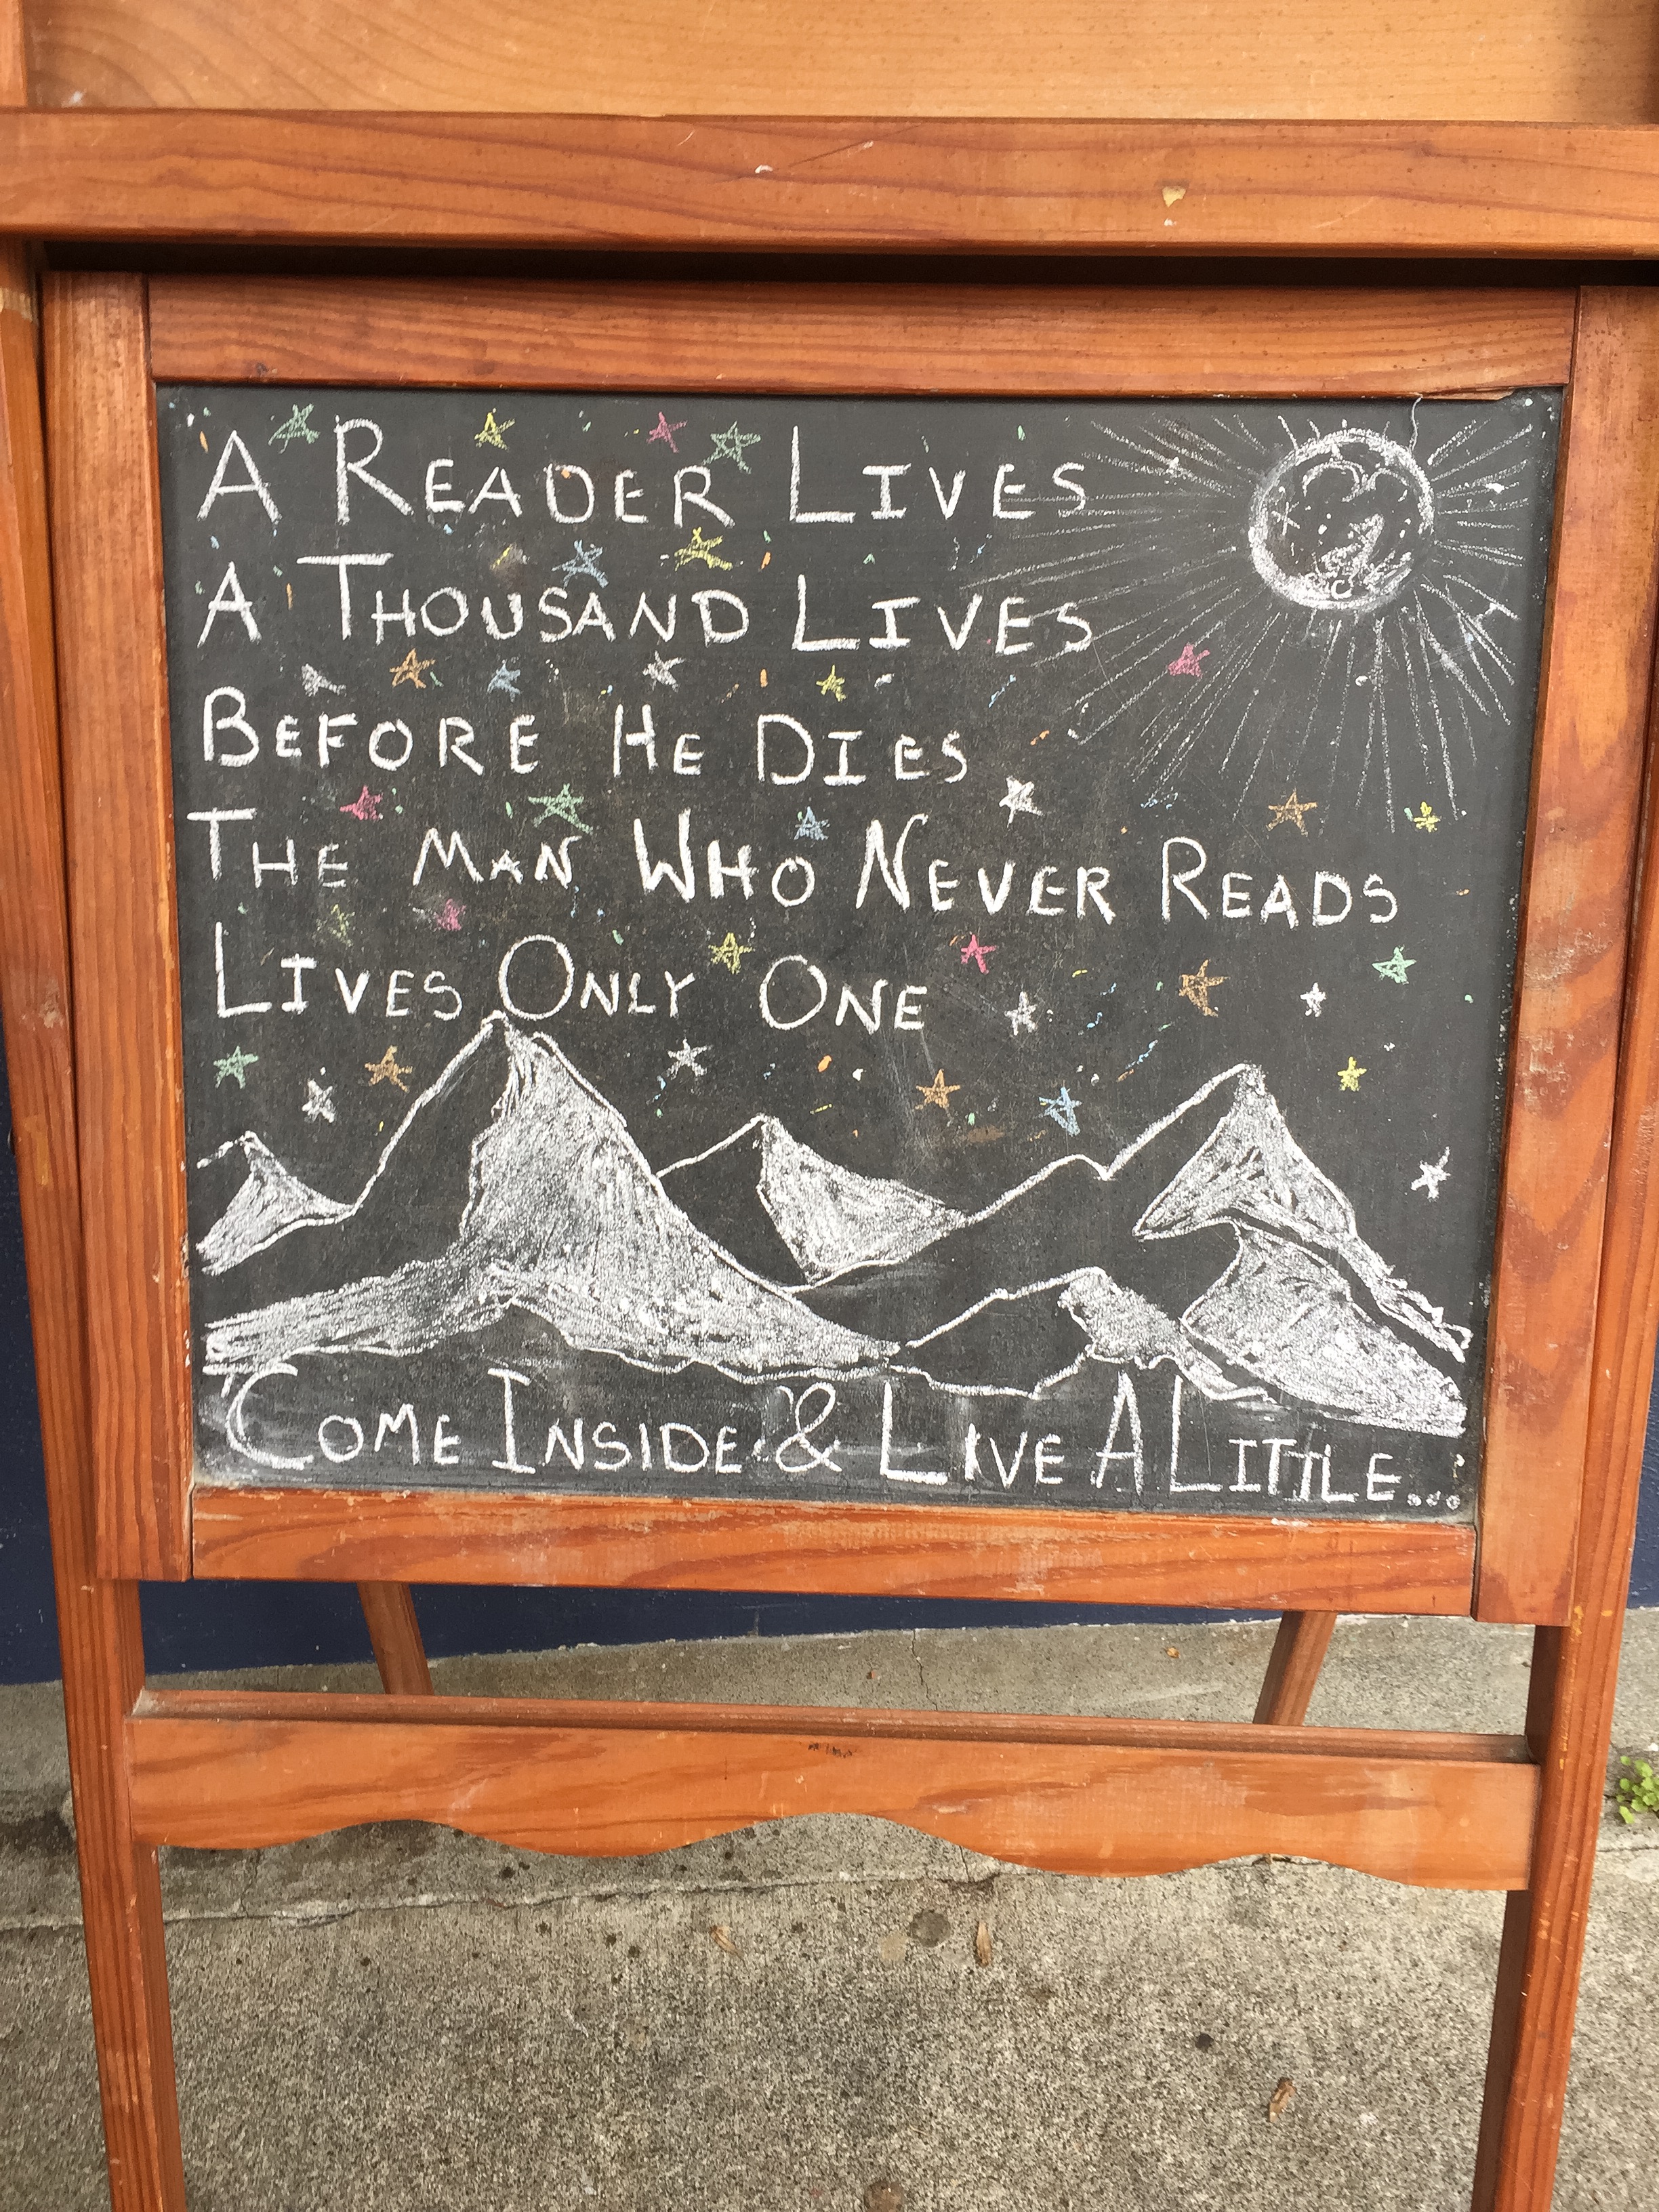 A READER LIVES
A THOUSAND LIVES
BEFORE HE DIES
THE MAN WHO NEVER READS
LIVES ONLY ONE
COME INSIDE & LIVE A LITTLE...